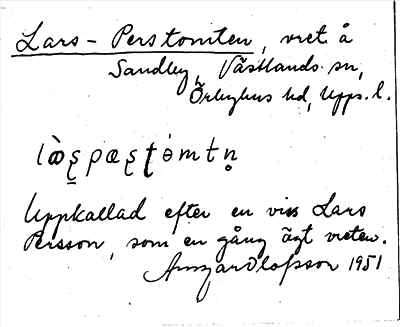 Lars-Perstomten, vret å
Sandby, Västlands sn,
Örbyhus hd, Upps. l.
Uppkallad efter en viss Lars
Persson, som en gång ägt vreten.
Olofsson 1951